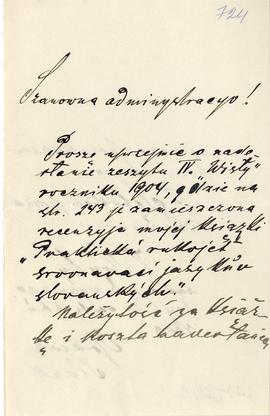 724
Szanowna administracyo!
Proszę uprzejmie o nade-
słanie zeszytu IV. "Wisły"
rocznika 1904, gdzie na
str. 243 je zamieszczona
recenzyje mojej książki
"Praktická rukojeť
srovnavací jazykův
slovanských."
Należytość za książ-
kę i koszta nadesłania